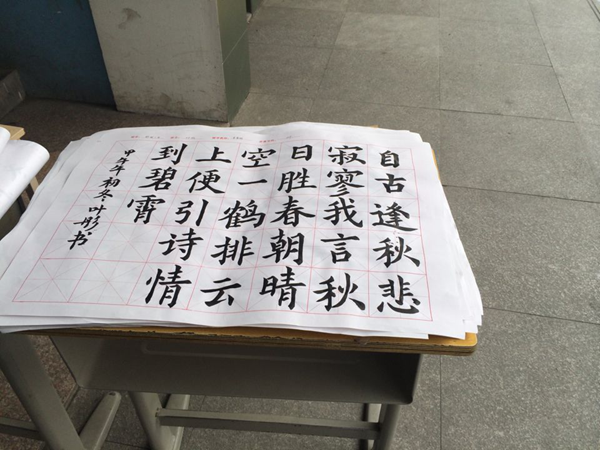 自古逢秋悲
寂寥我言秋
日胜春朝晴
空一鹤排云
上便引诗情
到碧霄
甲午年初冬叶彤书